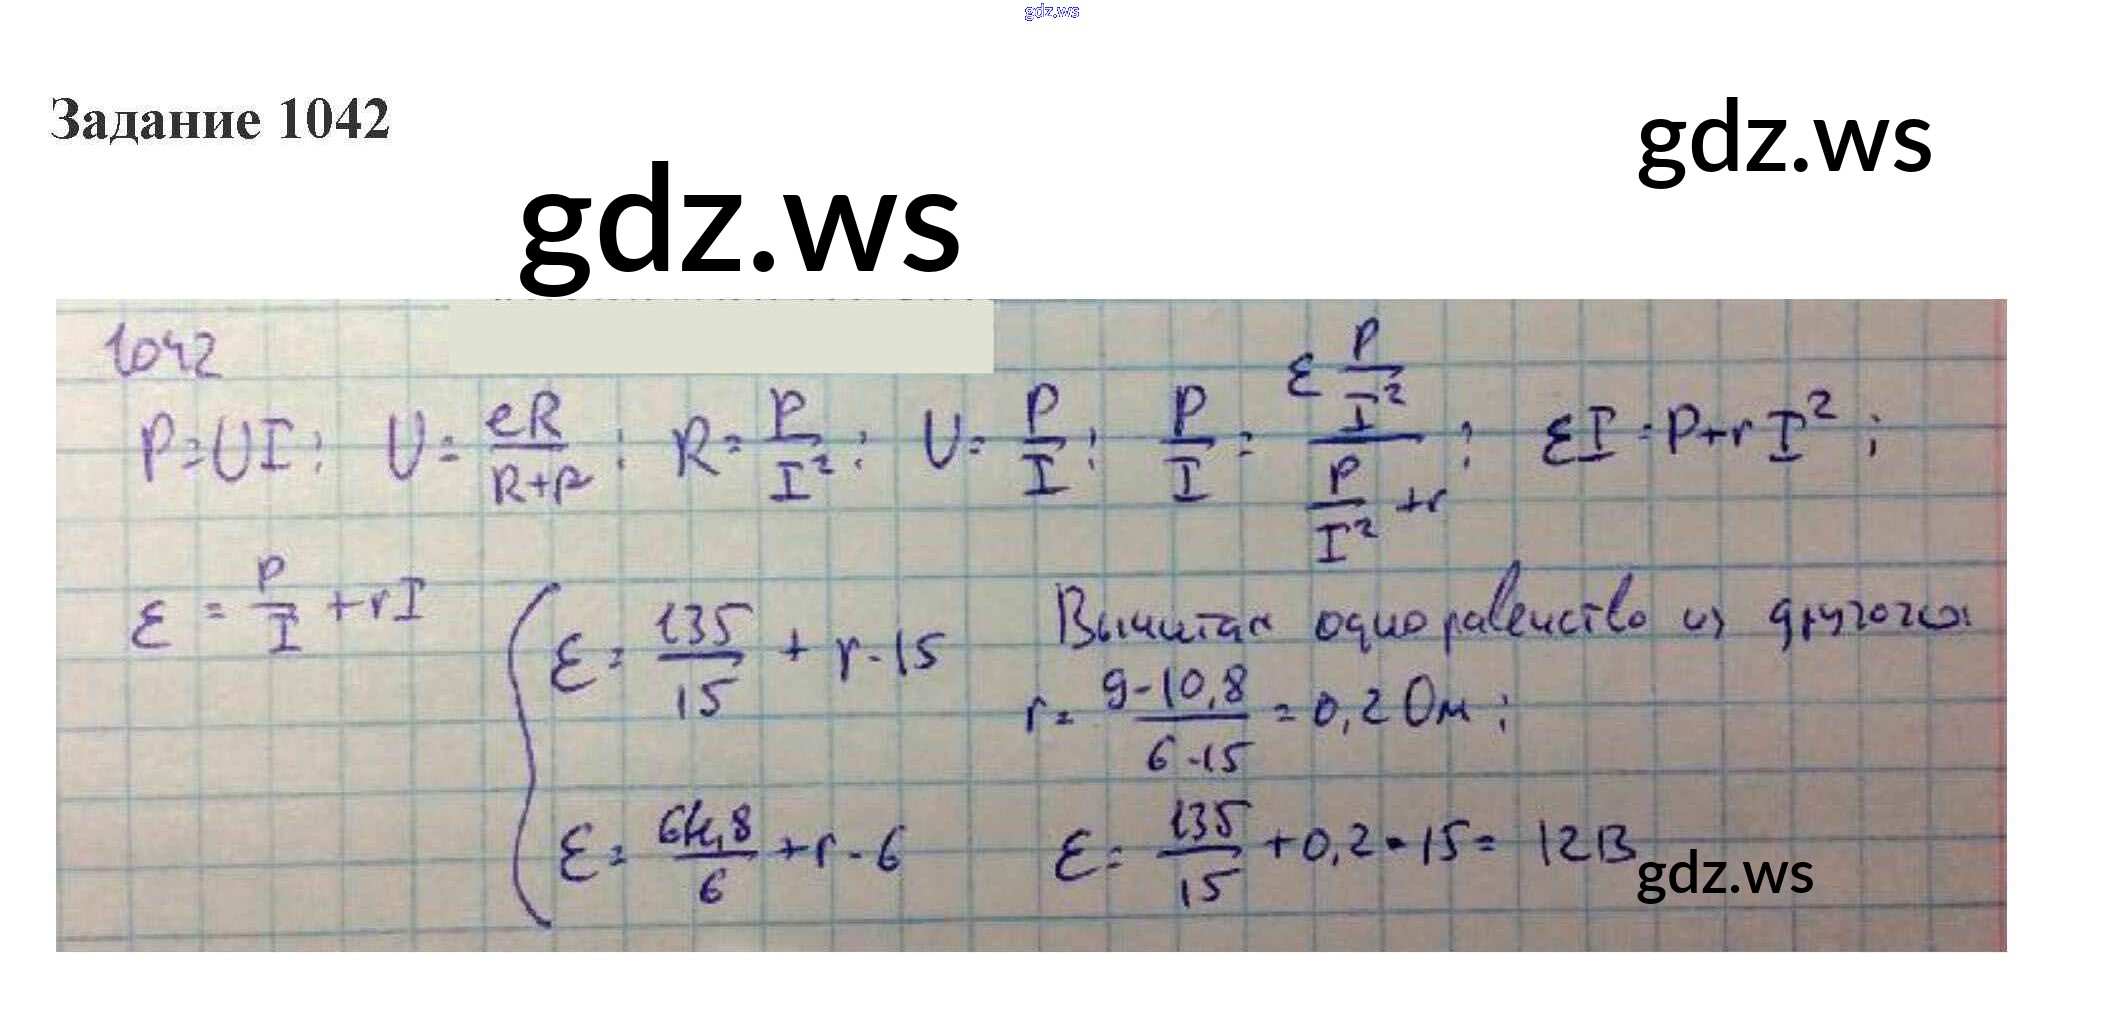 gdz.ws
Задание 1042
gdz.ws
gdz.ws
1042
P=UI; U= eR/(R+r); R= P/I²; U= P/I; P/I = (ε P/I²)/(P/I² + r); εI=P+rI²;
ε = P/I + rI
ε= 135/15 + r·15
ε= 64,8/6 + r·6
Вычитая одно равенство из другого:
r= (9-10,8)/(6-15) = 0,2 Ом;
ε= 135/15 + 0,2·15= 12В
gdz.ws